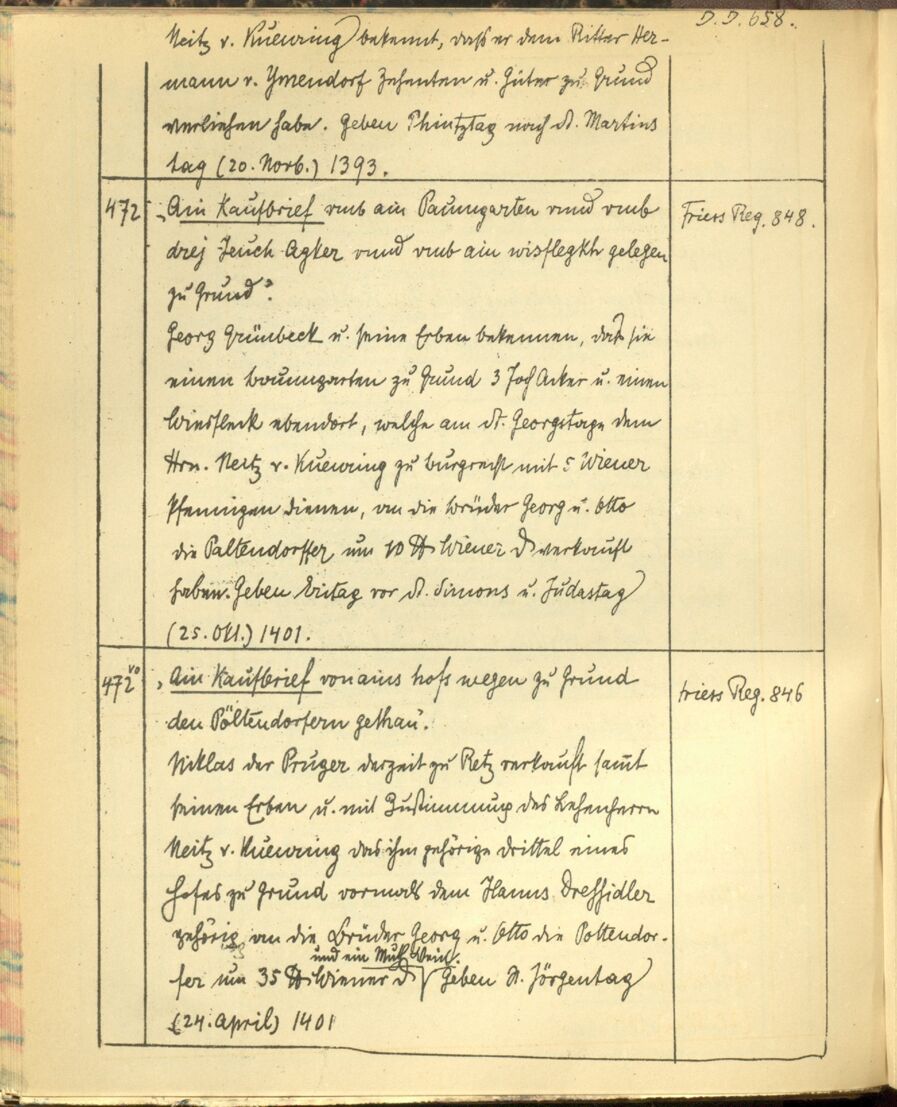 D.D. 658.
Neitz v. Kuenring bekennt, daß er dem Ritter Her-
mann v. Ymendorf Zehenten u. Güter zu Grund
verliehen habe. Geben Phintztag nach St. Martins
tag (20. Novb.) 1393.
472 „Ain Kaufbrief vmb ain Paumgarten vnnd vmb Friess Reg. 848.
drej Jeuch Agker vnnd vmb ain wisflegkh gelegen
zu Grund".
Georg Grünbeck u. seine Erben bekennen, daß sie
einen Baumgarten zu Grund 3 Joch Acker u. einen
Wiesfleck ebendort, welche am St. Georgstage dem
Hrn. Neitz v. Kuenring zu Burgrecht mit 5 Wiener
Pfennigen dienen, an die Brüder Georg u. Otto
die Paltendorffer um 10 ℔ Wiener ₰ verkauft
haben. Geben Eritag vor St. Simons u. Judastag
(25. Okt.) 1401.
472 vo „Ain Kaufbrief von ains hofs wegen zu Grund Friess Reg. 846
den Pöltendorfern gethan".
Niklas der Pruger derzeit zu Retz verkauft samt
seinen Erben u. mit Zustimmung des Lehenherrn
Neitz v. Kuenring das ihm gehörige Drittel eines
Hofes zu Grund vormals dem Hanns Dreßidler
gehörig an die Brüder Georg u. Otto die Pottendor-
und ein Muth Wein.
fer um 35 ℔ Wiener ₰ Geben St. Jörgentag
(24. April) 1401